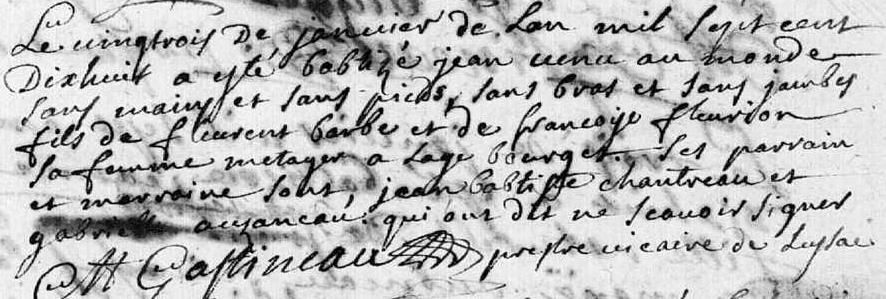 Le vingtrois de janvier de Lan mil sept cent
Dixhuit a esté babtizé jean venu au monde
sans mains et sans pieds, sans bras et sans jambes
fils de fleurent barbe et de françoise fleurion
sa femme metayer a Lage bourget. Ses parrain
et marraine sont jean babtiste chantreau et
gabrielle aujaneau qui ont dit ne scavoir signer
Gastineau prestre vicaire de Lussac